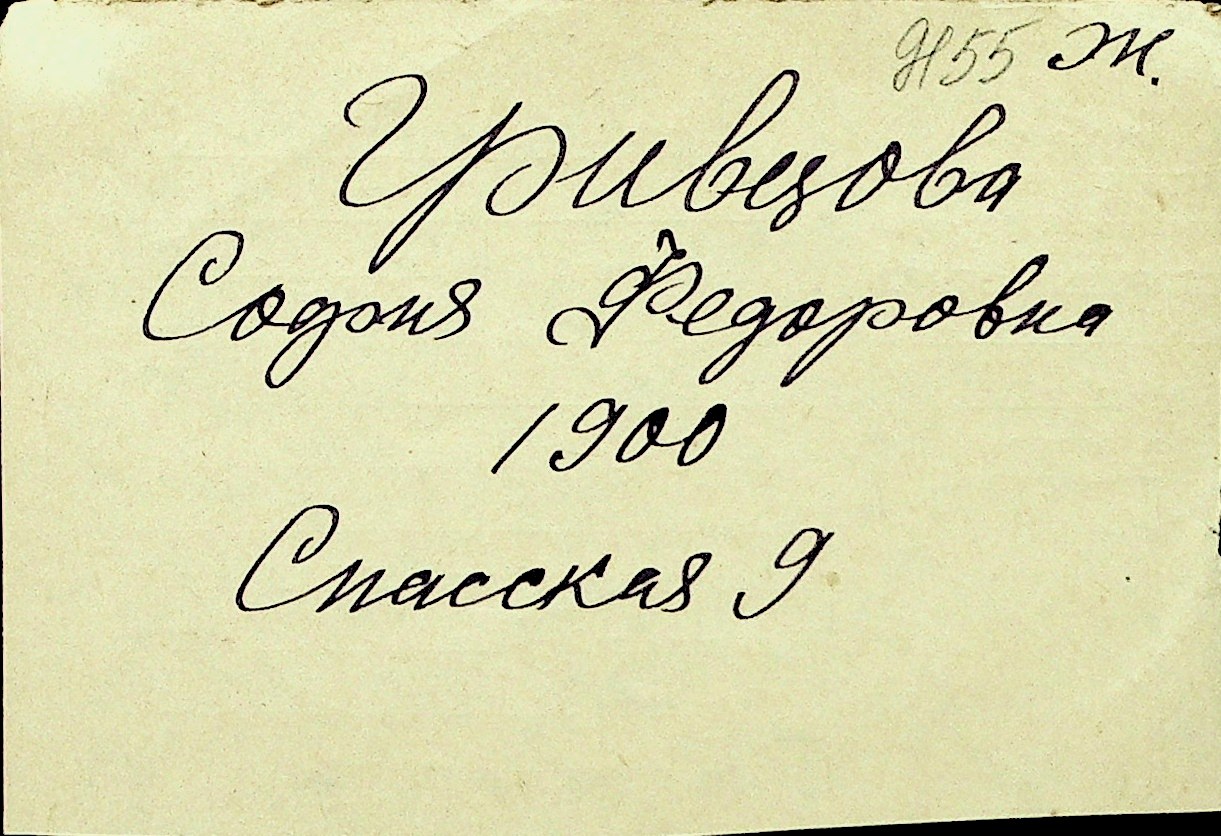 9155 Ж.
Гривцова
София Федоровна
1900
Спасская 9